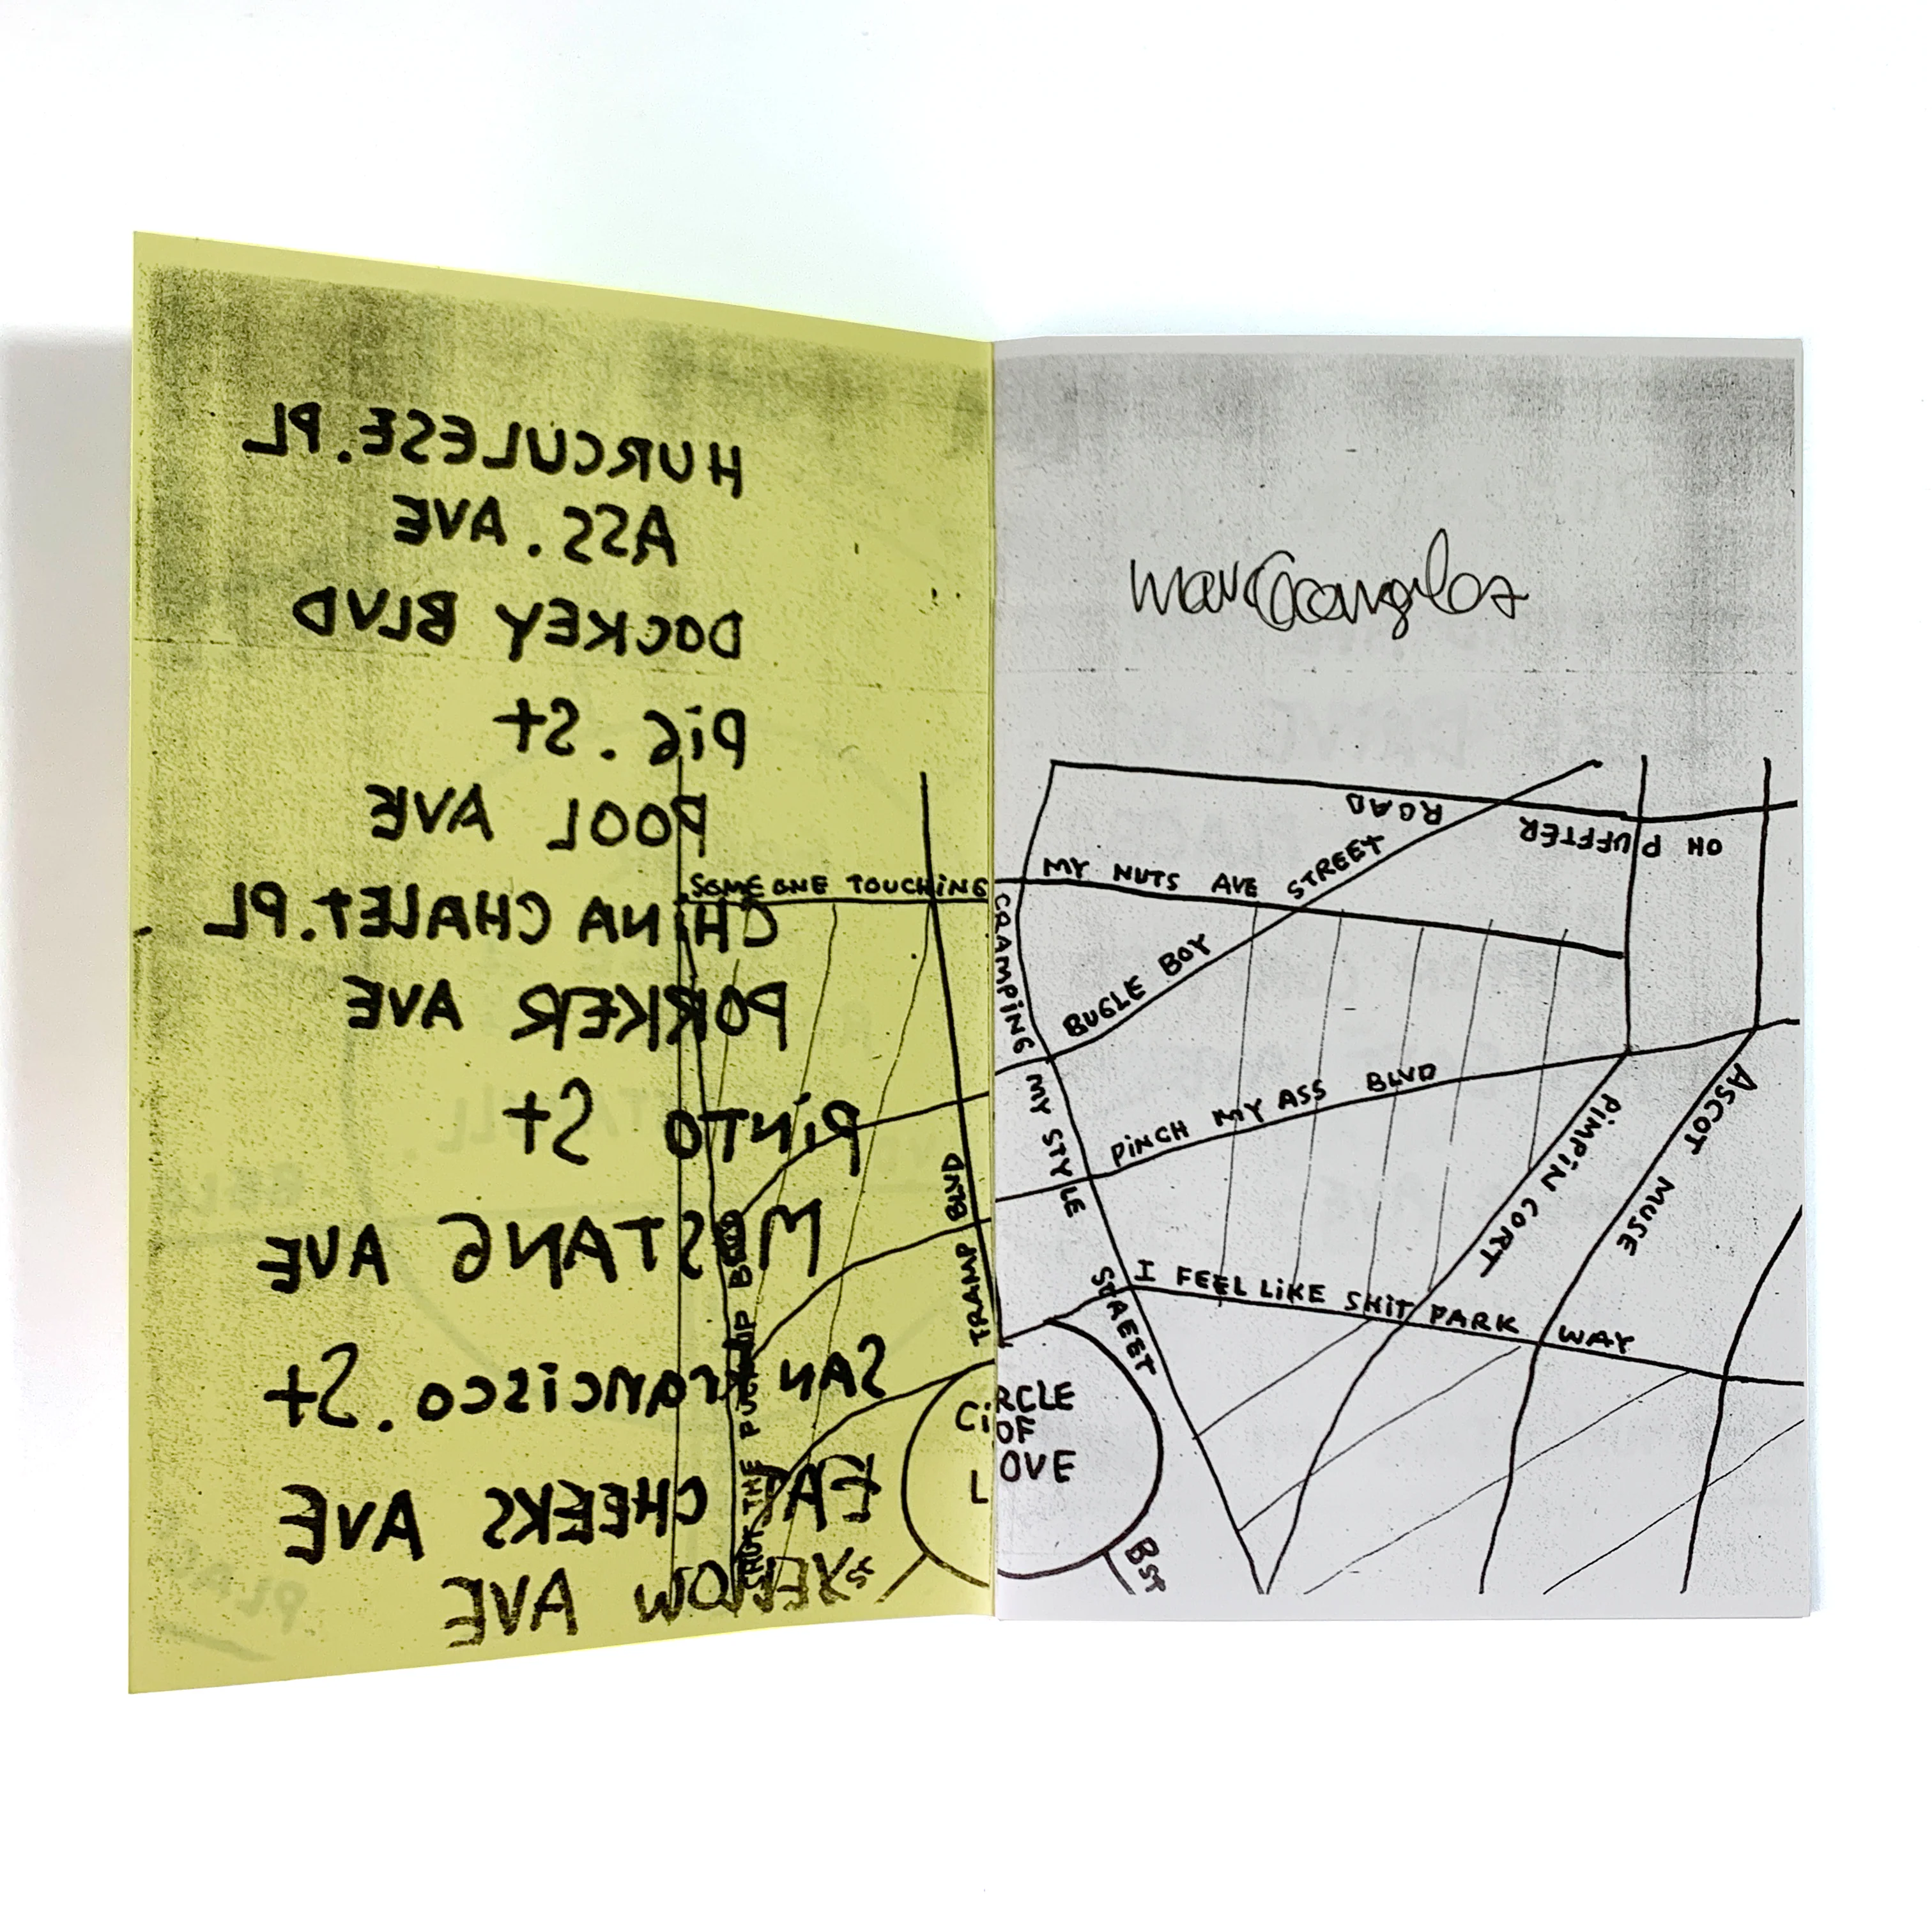 HURCULESE.PL
ASS. AVE
DOCKEY BLVD
PIG. St
POOL AVE
CHINA CHALET.PL
PORKER AVE
PINTO St
MUSTANG AVE
SAN FRANCISCO. St
EAT CHEEKS AVE
YELLOW AVE
SOMEONE TOUCHING
MY NUTS AVE
TRAMP BLVD
SHUT THE FUCK UP BLVD
CIRCLE
OF
LOVE
OH PUFFTER ROAD
BUGLE BOY STREET
CRAMPING MY STYLE STREET
PINCH MY ASS BLVD
PIMPIN CORT
ASCOT MUSE
I FEEL LIKE SHIT PARK WAY
BST